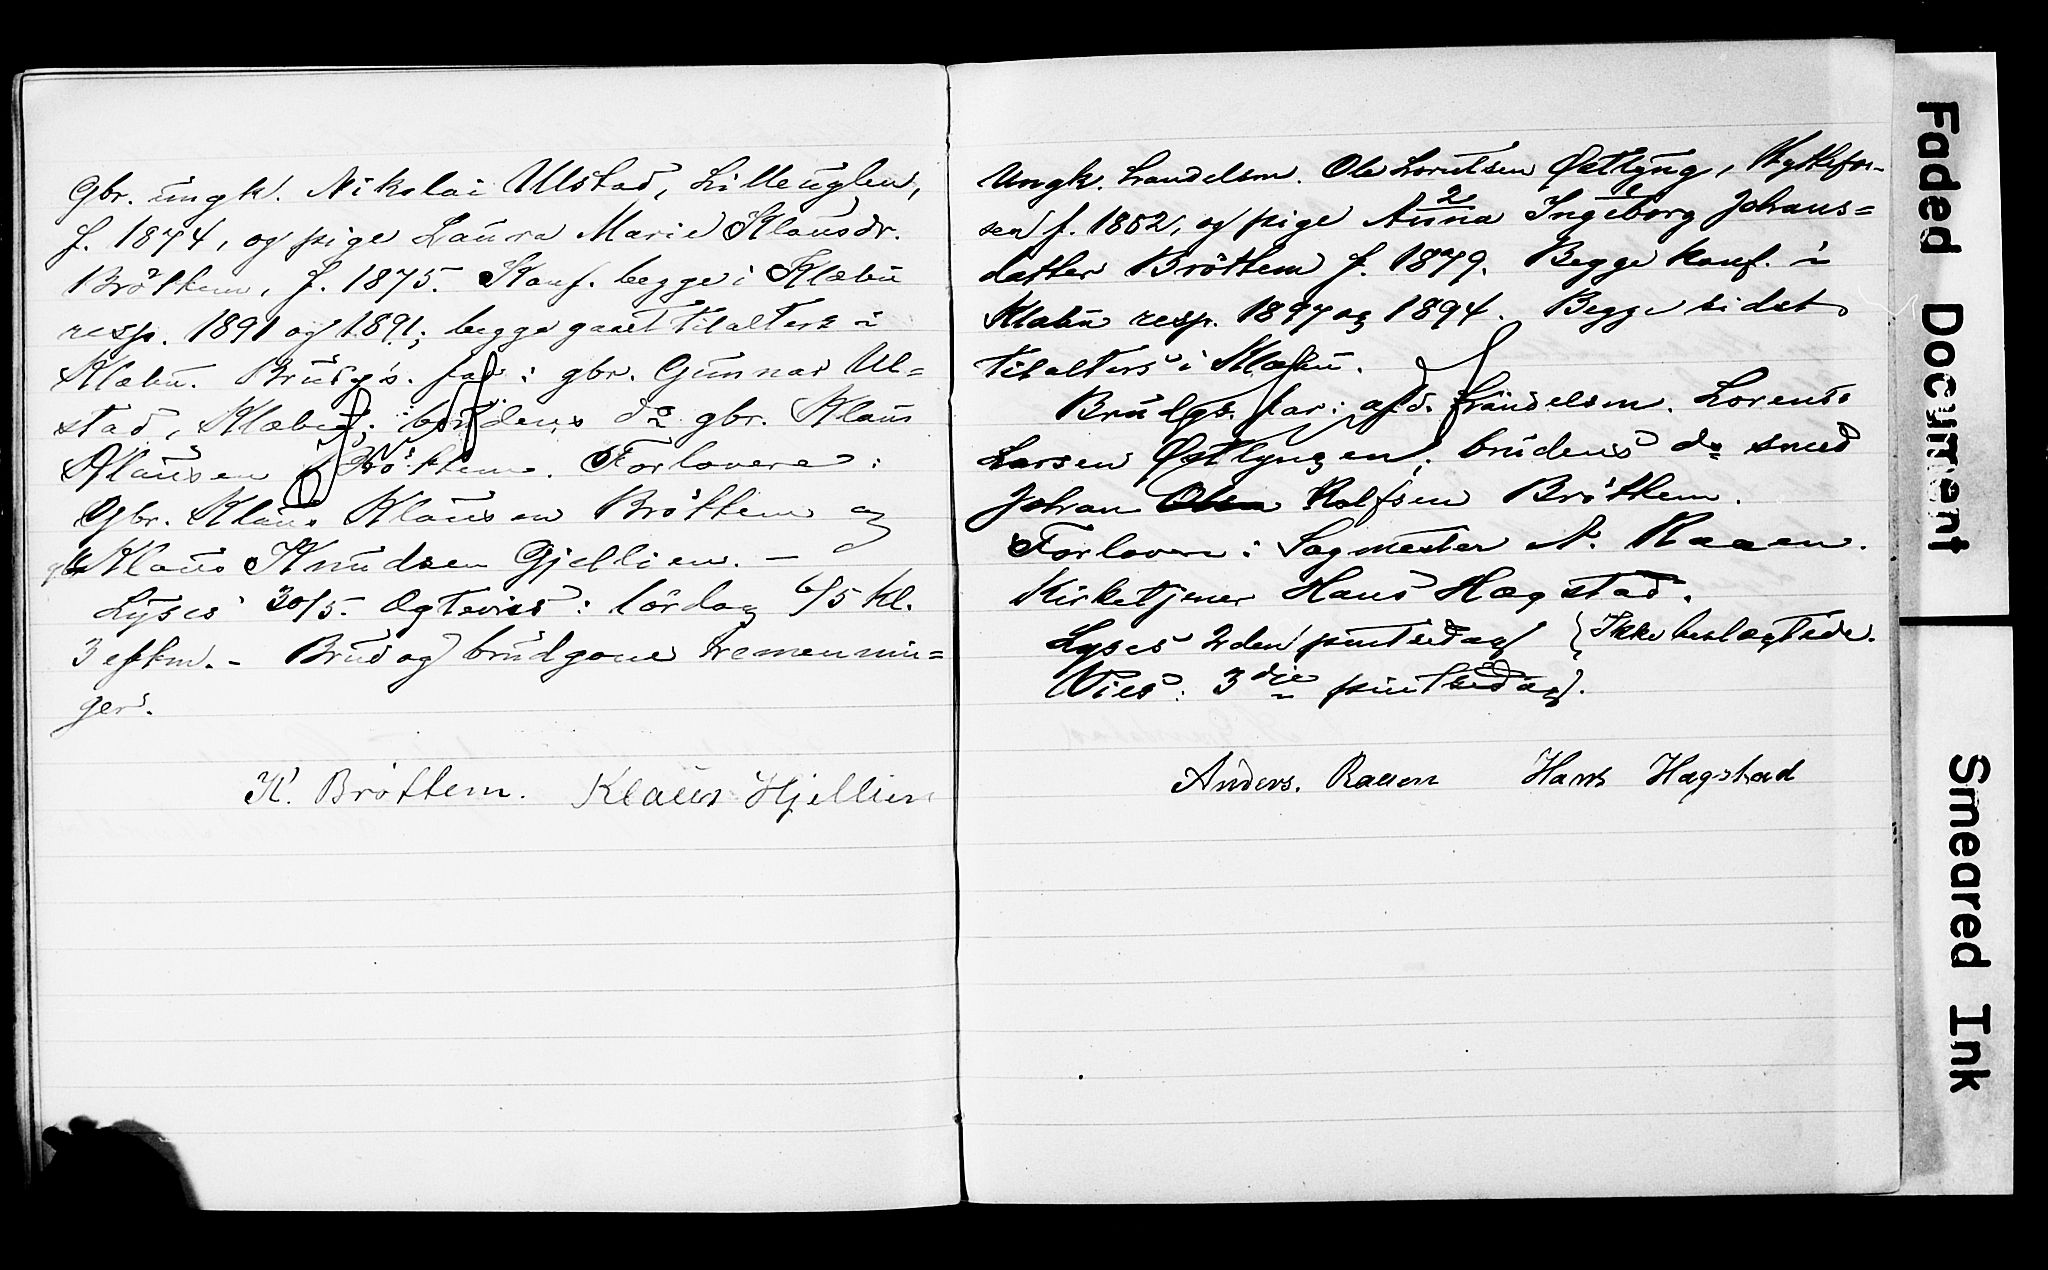 Gbr. ungk. Nikolai Ulstad, Lilleuglen,
f. 1874, og pige Laura Marie Klausdr.
Bröttem, f. 1875. Konf. begge i Klæbu
resp. 1891 og 1891; begge gaaet til alters i
Klæbu. Brudg's. far: gbr. Gunnar Ul=
stad, Klæbu; brudens do gbr. Klaus
Klausen Bröttem. Forlovere:
Gbr. Klaus Klausen Bröttem og
gbr Klaus Knudsen Gjellien. –
Lyses 30/5. Ægtevies: lördag 6/5 kl.
3 eftm. – Brud og brudgom tremennin=
ger.
K. Bröttem. Klaus Hjellien
Ungk. Ole Lorntsen Østlyng, Hyttefos-
sen f. 1882, og pige Anna 2 Ingeborg 1 Johans=
datter Bröttem f. 1879. Begge konf. i
Klæbu resp. 1897 og 1894. Begge sidst
til alters i Klæbu.
Brudgs. far: afd. Lorents
Larsen Østlyngen; brudens do smed
Johan Olsen Rolfsen Bröttem.
Forlovere: Sagmester A. Raaen.
Kirketjener Hans Hagstad.
Lyses 2den pintsedag { Ikke beslægtede.
Vies: 3dje pintsedag.
Anders. Raaen Hans Hagstad
Faded Document
Smeared Ink